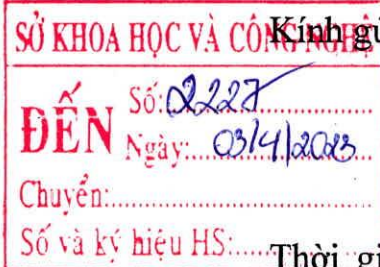 SỞ KHOA HỌC VÀ CÔNG NGHỆ
Kính gử
ĐẾN
Số: 2227
Ngày: 03/4/2023
Chuyển:
Số và ký hiệu HS:
Thời gi